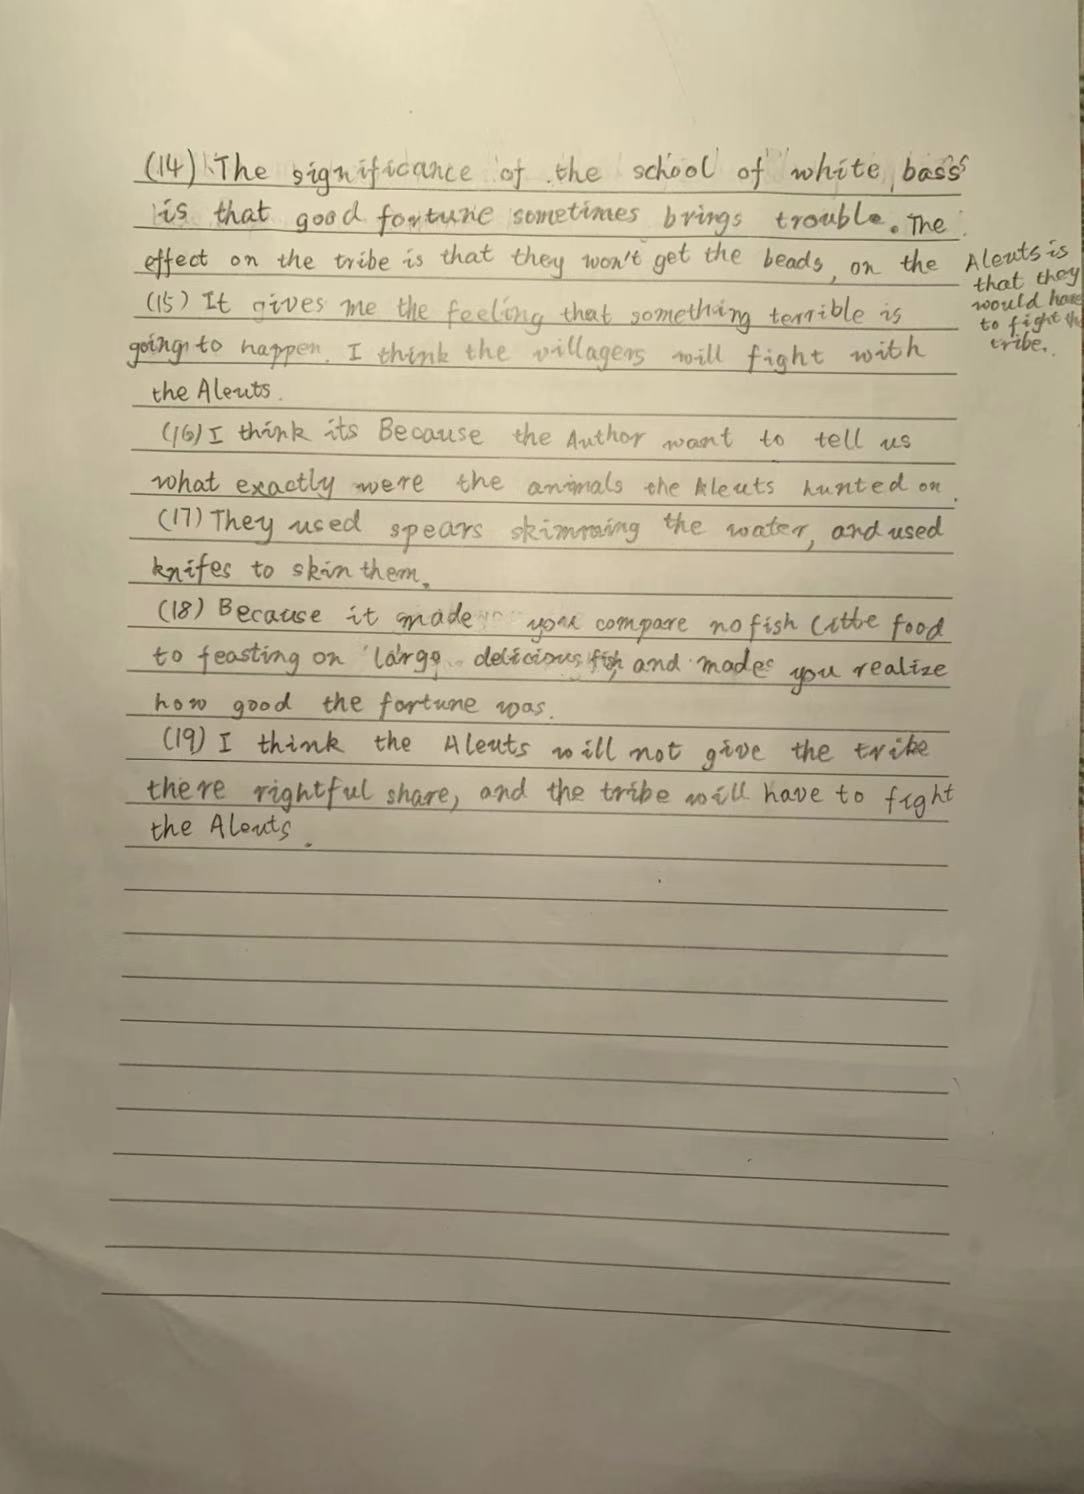 (14) The significance of the school of white bass
is that good fortune sometimes brings trouble. The
effect on the tribe is that they won't get the beads, on the
Aleuts is
that they
would have
to fight the
tribe.
(15) It gives me the feeling that something terrible is
going to happen. I think the villagers will fight with
the Aleuts.
(16) I think its Because the Author want to tell us
what exactly were the animals the Aleuts hunted on.
(17) They used spears skimming the water, and used
knifes to skin them.
(18) Because it made you compare no fish little food
to feasting on large delicious fish and made you realize
how good the fortune was.
(19) I think the Aleuts will not give the tribe
there rightful share, and the tribe will have to fight
the Aleuts.